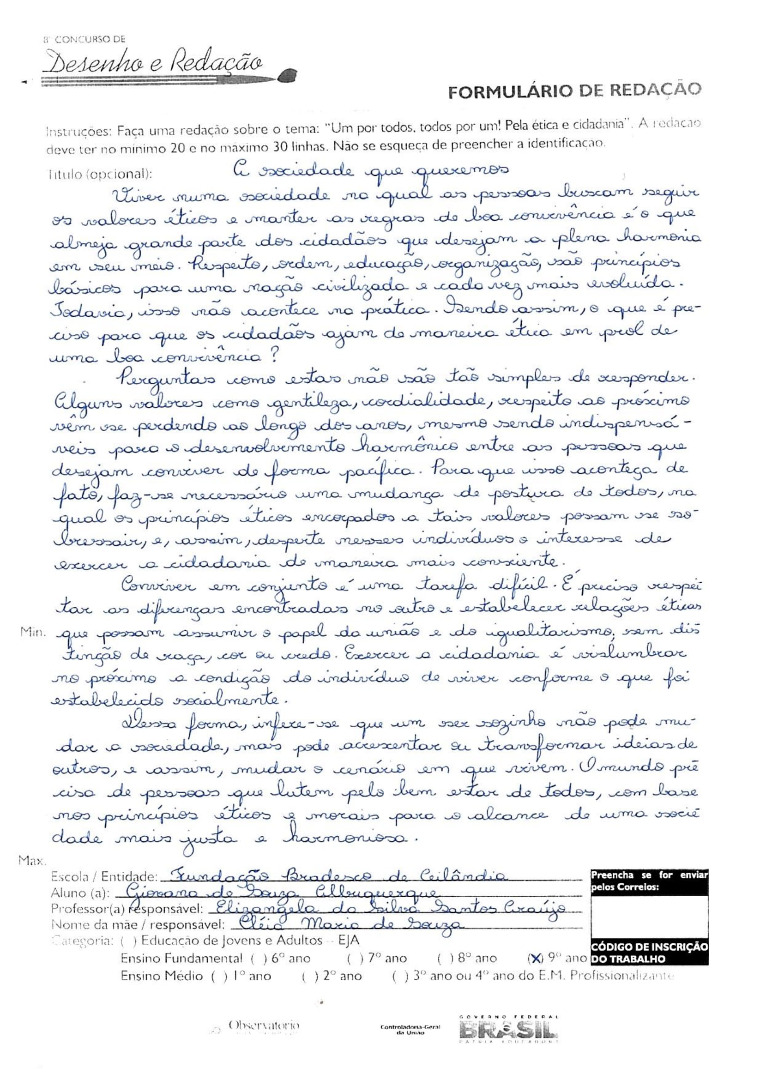 8º CONCURSO DE
Desenho e Redação
FORMULÁRIO DE REDAÇÃO
Instruções: Faça uma redação sobre o tema: "Um por todos, todos por um! Pela ética e cidadania". A redação
deve ter no mínimo 20 e no máximo 30 linhas. Não se esqueça de preencher a identificação.
Título (opcional): A sociedade que queremos
Viver numa sociedade na qual as pessoas buscam seguir
os valores éticos e manter as regras de boa convivência é o que
almeja grande parte dos cidadãos que desejam a plena harmonia
em seu meio. Respeito, ordem, educação, organização, são princípios
básicos para uma nação civilizada e cada vez mais evoluída.
Todavia, isso não acontece na prática. Sendo assim, o que é pre-
ciso para que os cidadãos ajam de maneira ética em prol de
uma boa convivência?
Perguntas como estas não são tão simples de responder.
Alguns valores como gentileza, cordialidade, respeito ao próximo
vêm se perdendo ao longo dos anos, mesmo sendo indispensá-
veis para o desenvolvimento harmônico entre as pessoas que
desejam conviver de forma pacífica. Para que isso aconteça de
fato, faz-se necessário uma mudança de postura de todos, na
qual os princípios éticos encorpados a tais valores possam se so-
bressair, e, assim, desperte nesses indivíduos o interesse de
exercer a cidadania de maneira mais consciente.
Conviver em conjunto é uma tarefa difícil. É preciso respei
tar as diferenças encontradas no outro e estabelecer relações éticas
Min. que possam assumir o papel da união e do igualitarismo, sem dis
tinção de raça, cor ou credo. Exercer a cidadania é vislumbrar
no próximo a condição do indivíduo de viver conforme o que foi
estabelecido socialmente.
Dessa forma, infere-se que um ser sozinho não pode mu-
dar a sociedade, mas pode acrescentar ou transformar ideias de
outros, e assim, mudar o cenário em que vivem. O mundo pre
cisa de pessoas que lutem pelo bem estar de todos, com base
nos princípios éticos e morais para o alcance de uma socie
dade mais justa e harmoniosa.
Max.
Escola / Entidade: Fundação Bradesco de Ceilândia
Aluno (a): Giovana de Souza Albuquerque
Professor(a) responsável: Elizangela da Silva Santos Araújo
Nome da mãe / responsável: Cléia Maria de Souza
Preencha se for enviar
pelos Correios:
CÓDIGO DE INSCRIÇÃO
DO TRABALHO
Categoria: ( ) Educação de Jovens e Adultos - EJA
Ensino Fundamental ( ) 6º ano ( ) 7º ano ( ) 8º ano (X) 9º ano
Ensino Médio ( ) 1º ano ( ) 2º ano ( ) 3º ou 4º ano do E.M. Profissionalizante
Observatório
Controladoria-Geral
da União
GOVERNO FEDERAL
BRASIL
PÁTRIA EDUCADORA